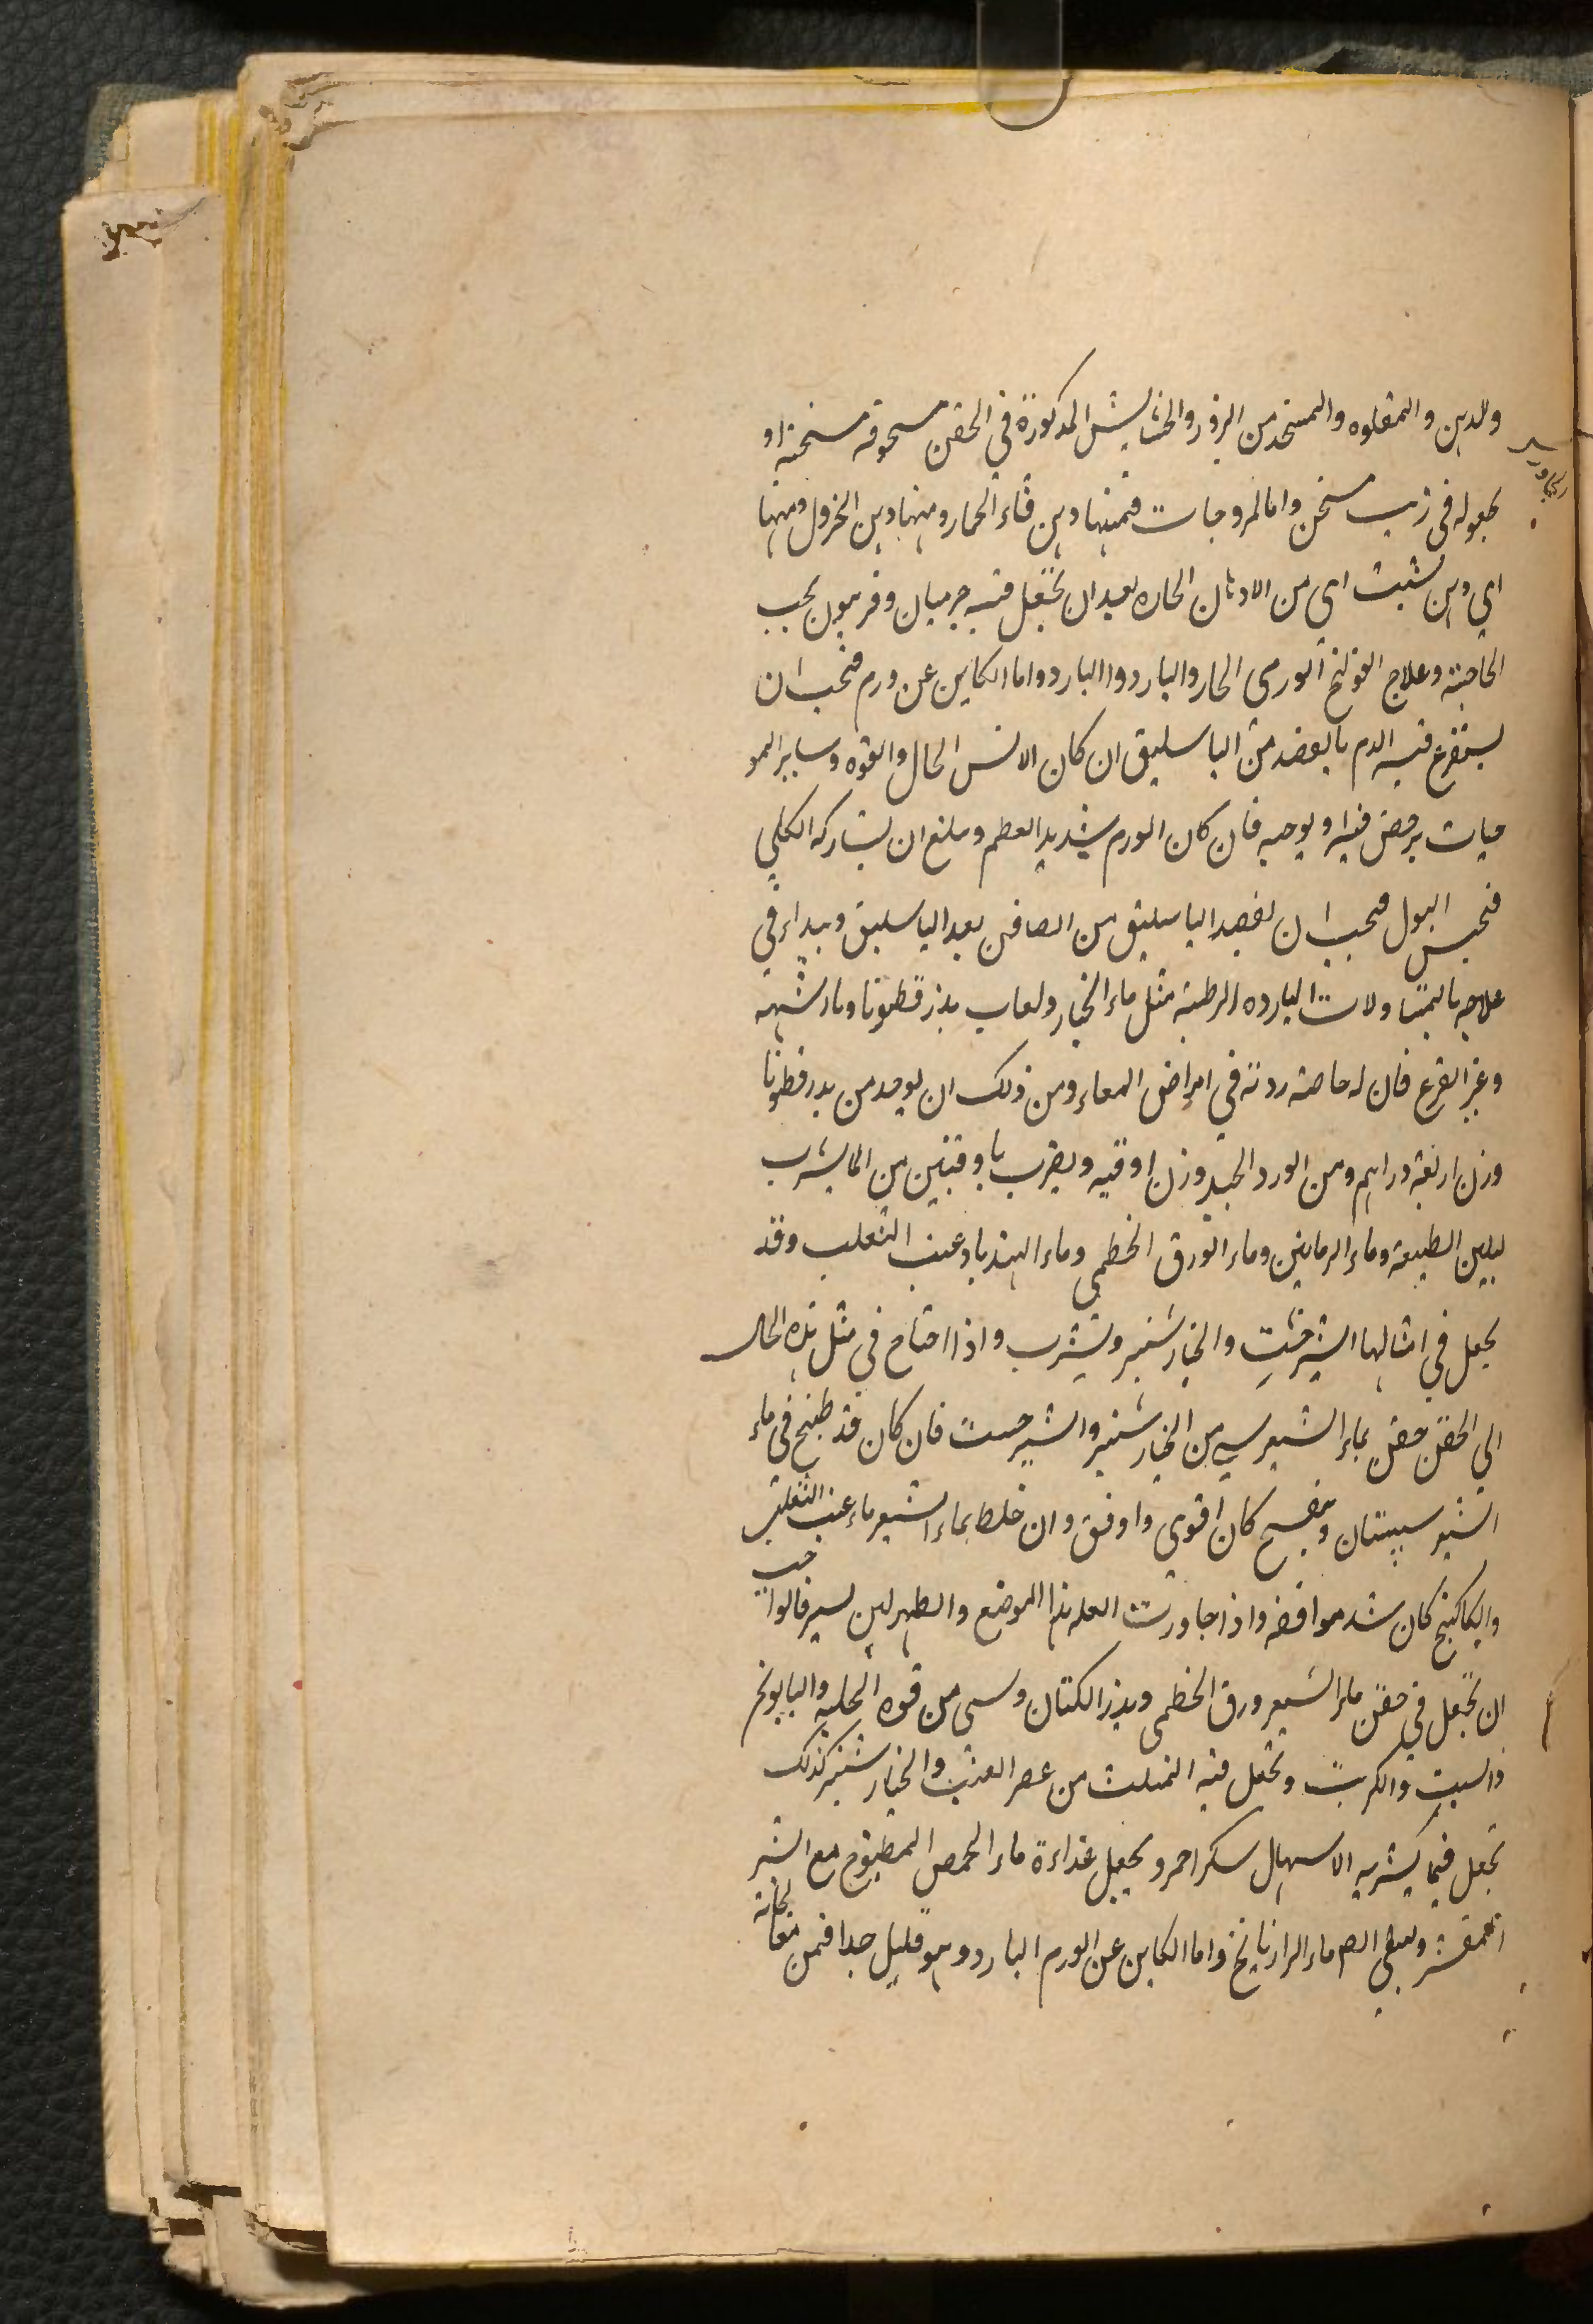 ولدہن والمقلوه والمتخذ من البزور والحشایش المذكورة فی الحقن مسحوقه مسخنة او
مجعوله فی زیت مسخن واما المروجات فمنها دہن قثاء الحمار ومنها دہن الخردل ومنها
ای دہن شئت ای من الادہان الحاره بعد ان تجعل فیه جربیان وفربیون بحسب
الحاجة وعلاج القولنج الورمی الحار والبارد واالبارد واما الكاین عن ورم فیجب ان
یستفرغ فیه الدم بالفصد من الباسلیق ان كان الانس الحال والقوه وسایر المو
جبات یرخص فیه او یوجبه فان كان الورم شدید العظم وبلغ ان یشاركه الكلی
فیحبس البول فیجب ان یفصد الباسلیق من الصافن بعد الباسلیق ویبداء فی
علاجه بالمتناولات البارده الرطبة مثل ماء الخیار ولعاب بذر قطونا وما اشبه
وغیر القرع فان له خاصة ردیة فی امراض المعاء ومن ذلك ان یوخذ من بذر قطونا
وزن اربعة دراہم ومن الورد الجید وزن اوقیه ویضرب باوقیتین من الما یشرب
لیلین الطبیعة وماء الرمانین وماء الورق الخطمی وماء الہندبا وعنب الثعلب وقد
یجعل فی امثالہا الشیرخشت والخیارشنبر ویشرب واذا احتاج فی مثل ہذه الحال
الی الحقن حقن بماء الشعیر شی من الخیارشنبر والشیرخشت فان كان قد طبخ فی ماء
الشعیر سپستان وبنفسج كان اقوی واوفق وان خلط بماء الشعیر ماء عنب الثعلب
والكاكنج كان اشد موافقه واذا جاورت العله ہذا الموضع والظہر لین یسیر فالواجب
ان تجعل فی حقن ماء الشعیر ورق الخطمی وبذر الكتان وشی من قوه الحلبه والبابونج
والشبت والكرنب وتجعل فیه المثلث من عصر العنب والخیارشنبر كذلك
تجعل فیما یشربه الاسہال سكر احمر ویجعل غذاءة ماء الحمص المطبوخ مع الشعیر
المقشر ویسقی ایضا ماء الرازیانج واما الكاین عن الورم البارد وہو قلیل جدا فمن معالجاته